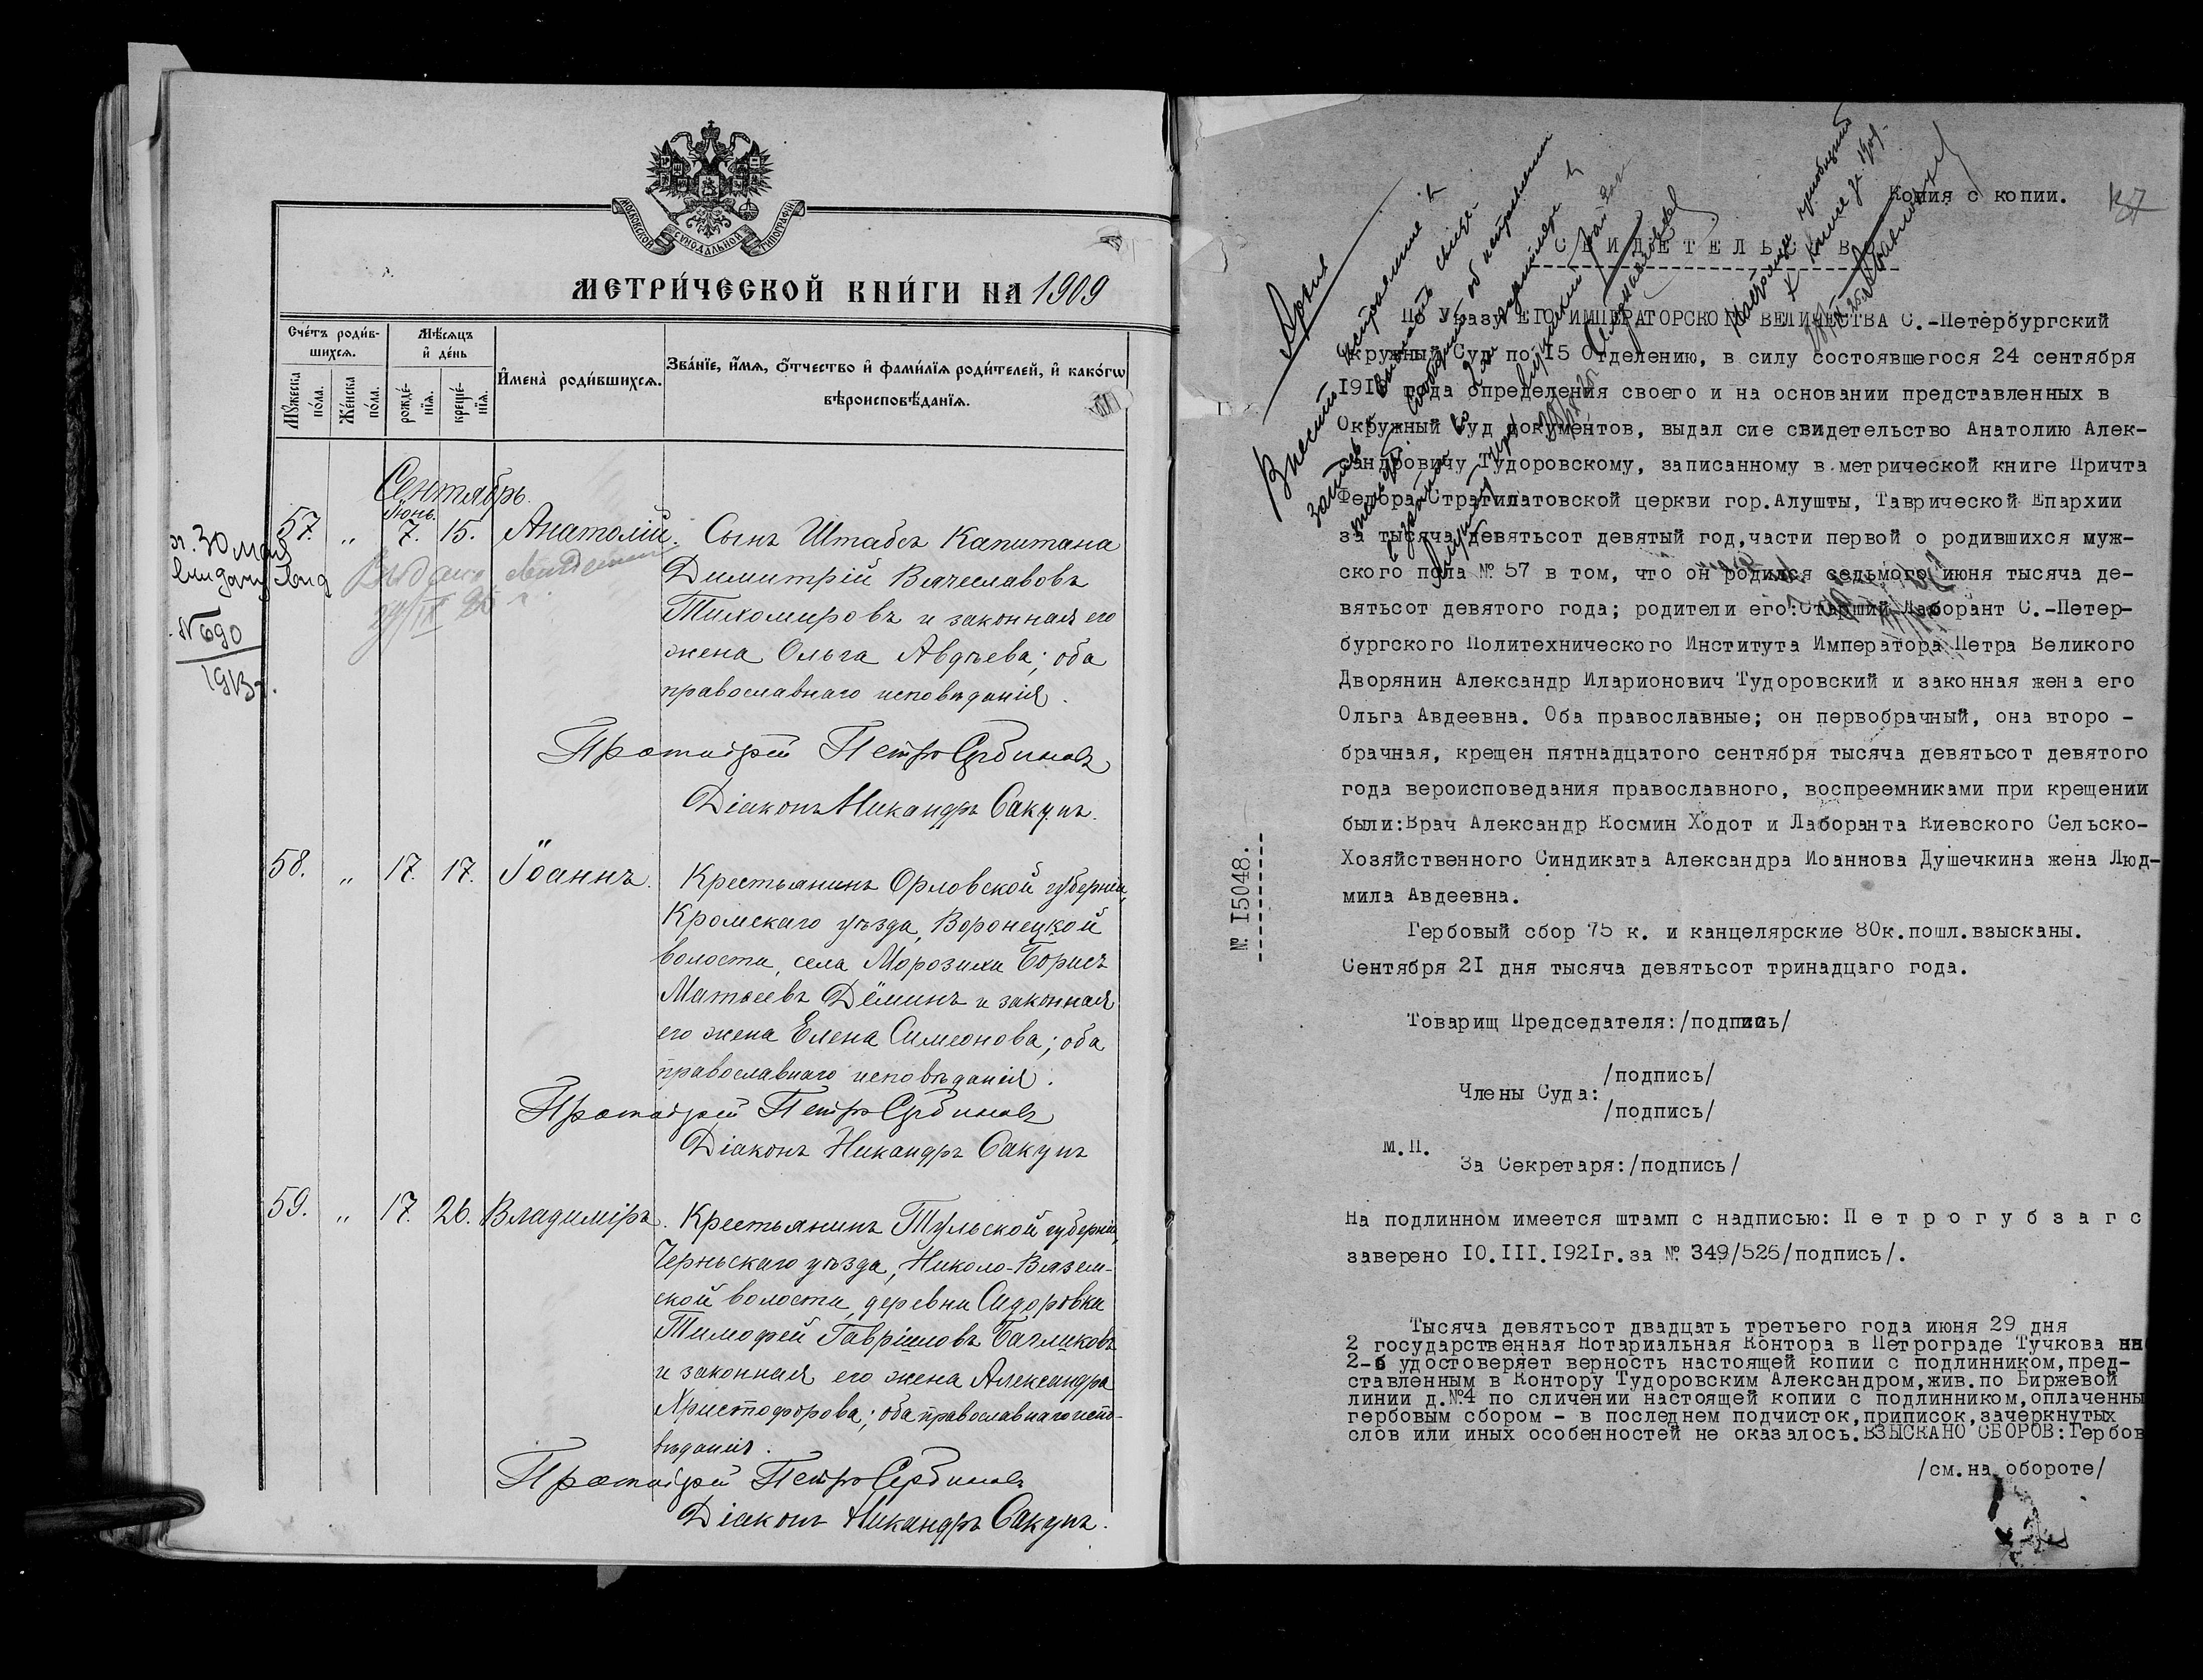 МОСКОВСКОЙ СѴНОДАЛЬНОЙ ТИПОГРАФІИ
МЕТРИ́ЧЕСКОЙ КНИ́ГИ НА 1909
Сче́тъ роди́вшихся.
Мѣ́сяцъ и҆ де́нь
И҆мена̀ роди́вшихся.
Зва́нїе, и҆́мя, ѻ҆́тчество и҆ фами́лїя роди́телей, и҆ како́гѡ
вѣроисповѣ́данїя.
Мꙋ́жеска по́ла.
Же́нска по́ла.
рожде́нїя.
креще́нїя.
Сентябрь.
Іюнь.
57. „ 7. 15. Анатолій. Сынъ Штабсъ Капитана
Димитрій Вячеславовъ
Тихомировъ и законная его
жена Ольга Авдѣева; оба
православнаго исповѣданія.
30 мая
выдачу свид
№ 690
1913 г.
Выдано
Протоіерей Петръ Сербиновъ
Діаконъ Никандръ Сакунъ.
58. „ 17. 17. Іоаннъ. Крестьянинъ Орловской губерніи,
Кромскаго уѣзда, Воронецкой
волости, села Морозихи Борисъ
Матѳеевъ Дёминъ и законная
его жена Елена Симеонова; оба
православнаго исповѣданія.
Протоіерей Петръ Сербиновъ
Діаконъ Никандръ Сакунъ
59. „ 17. 26. Владиміръ. Крестьянинъ Тульской губерніи,
Черньскаго уѣзда, Николо-Вязем-
ской волости, деревни Сидоровки
Тимофей Гавріиловъ Багликовъ
и законная его жена Александра
Христофорова; оба православнаго испо-
вѣданія.
Протоіерей Петръ Сербиновъ
Діаконъ Никандръ Сакунъ.
Копия с копии.
37
С В И Д Е Т Е Л Ь С Т В О
По Указу ЕГО ИМПЕРАТОРСКОГО ВЕЛИЧЕСТВА С.-Петербургский
Окружный Суд по 15 Отделению, в силу состоявшегося 24 сентября
191 года определения своего и на основании представленных в
Окружный Суд документов, выдал сие свидетельство Анатолию Алек-
сандровичу Тудоровскому, записанному в метрической книге Причта
Федора Стратилатовской церкви гор.Алушты, Таврической Епархии
за тысяча девятьсот девятый год,части первой о родившихся муж-
ского пола № 57 в том, что он родился седьмого июня тысяча де-
вятьсот девятого года; родители его:Старший Лаборант С.-Петер-
бургского Политехнического Института Императора Петра Великого
Дворянин Александр Иларионович Тудоровский и законная жена его
Ольга Авдеевна. Оба православные; он первобрачный, она второ -
брачная, крещен пятнадцатого сентября тысяча девятьсот девятого
года вероисповедания православного, воспреемниками при крещении
были:Врач Александр Космин Ходот и Лаборанта Киевского Сельско-
Хозяйственного Синдиката Александра Иоаннова Душечкина жена Люд-
мила Авдеевна.
Гербовый сбор 75 к. и канцелярские 80к.пошл.взысканы.
Сентября 21 дня тысяча девятьсот тринадцаго года.
№ 15048.
Товарищ Председателя:/подпись/
/подпись/
Члены Суда:
/подпись/
М.П.
За Секретаря:/подпись/
На подлинном имеется штамп с надписью: П е т р о г у б з а г с
заверено 10.III.1921г.за № 349/526/подпись/.
Тысяча девятьсот двадцать третьего года июня 29 дня
2 государственная Нотариальная Контора в Петрограде Тучкова
2-б удостоверяет верность настоящей копии с подлинником,пред-
ставленным в Контору Тудоровским Александром,жив.по Биржевой
линии д.№4 по сличении настоящей копии с подлинником,оплаченны
гербовым сбором - в последнем подчисток,приписок,зачеркнутых
слов или иных особенностей не оказалось.ВЗЫСКАНО СБОРОВ:Гербов
/см.на обороте/